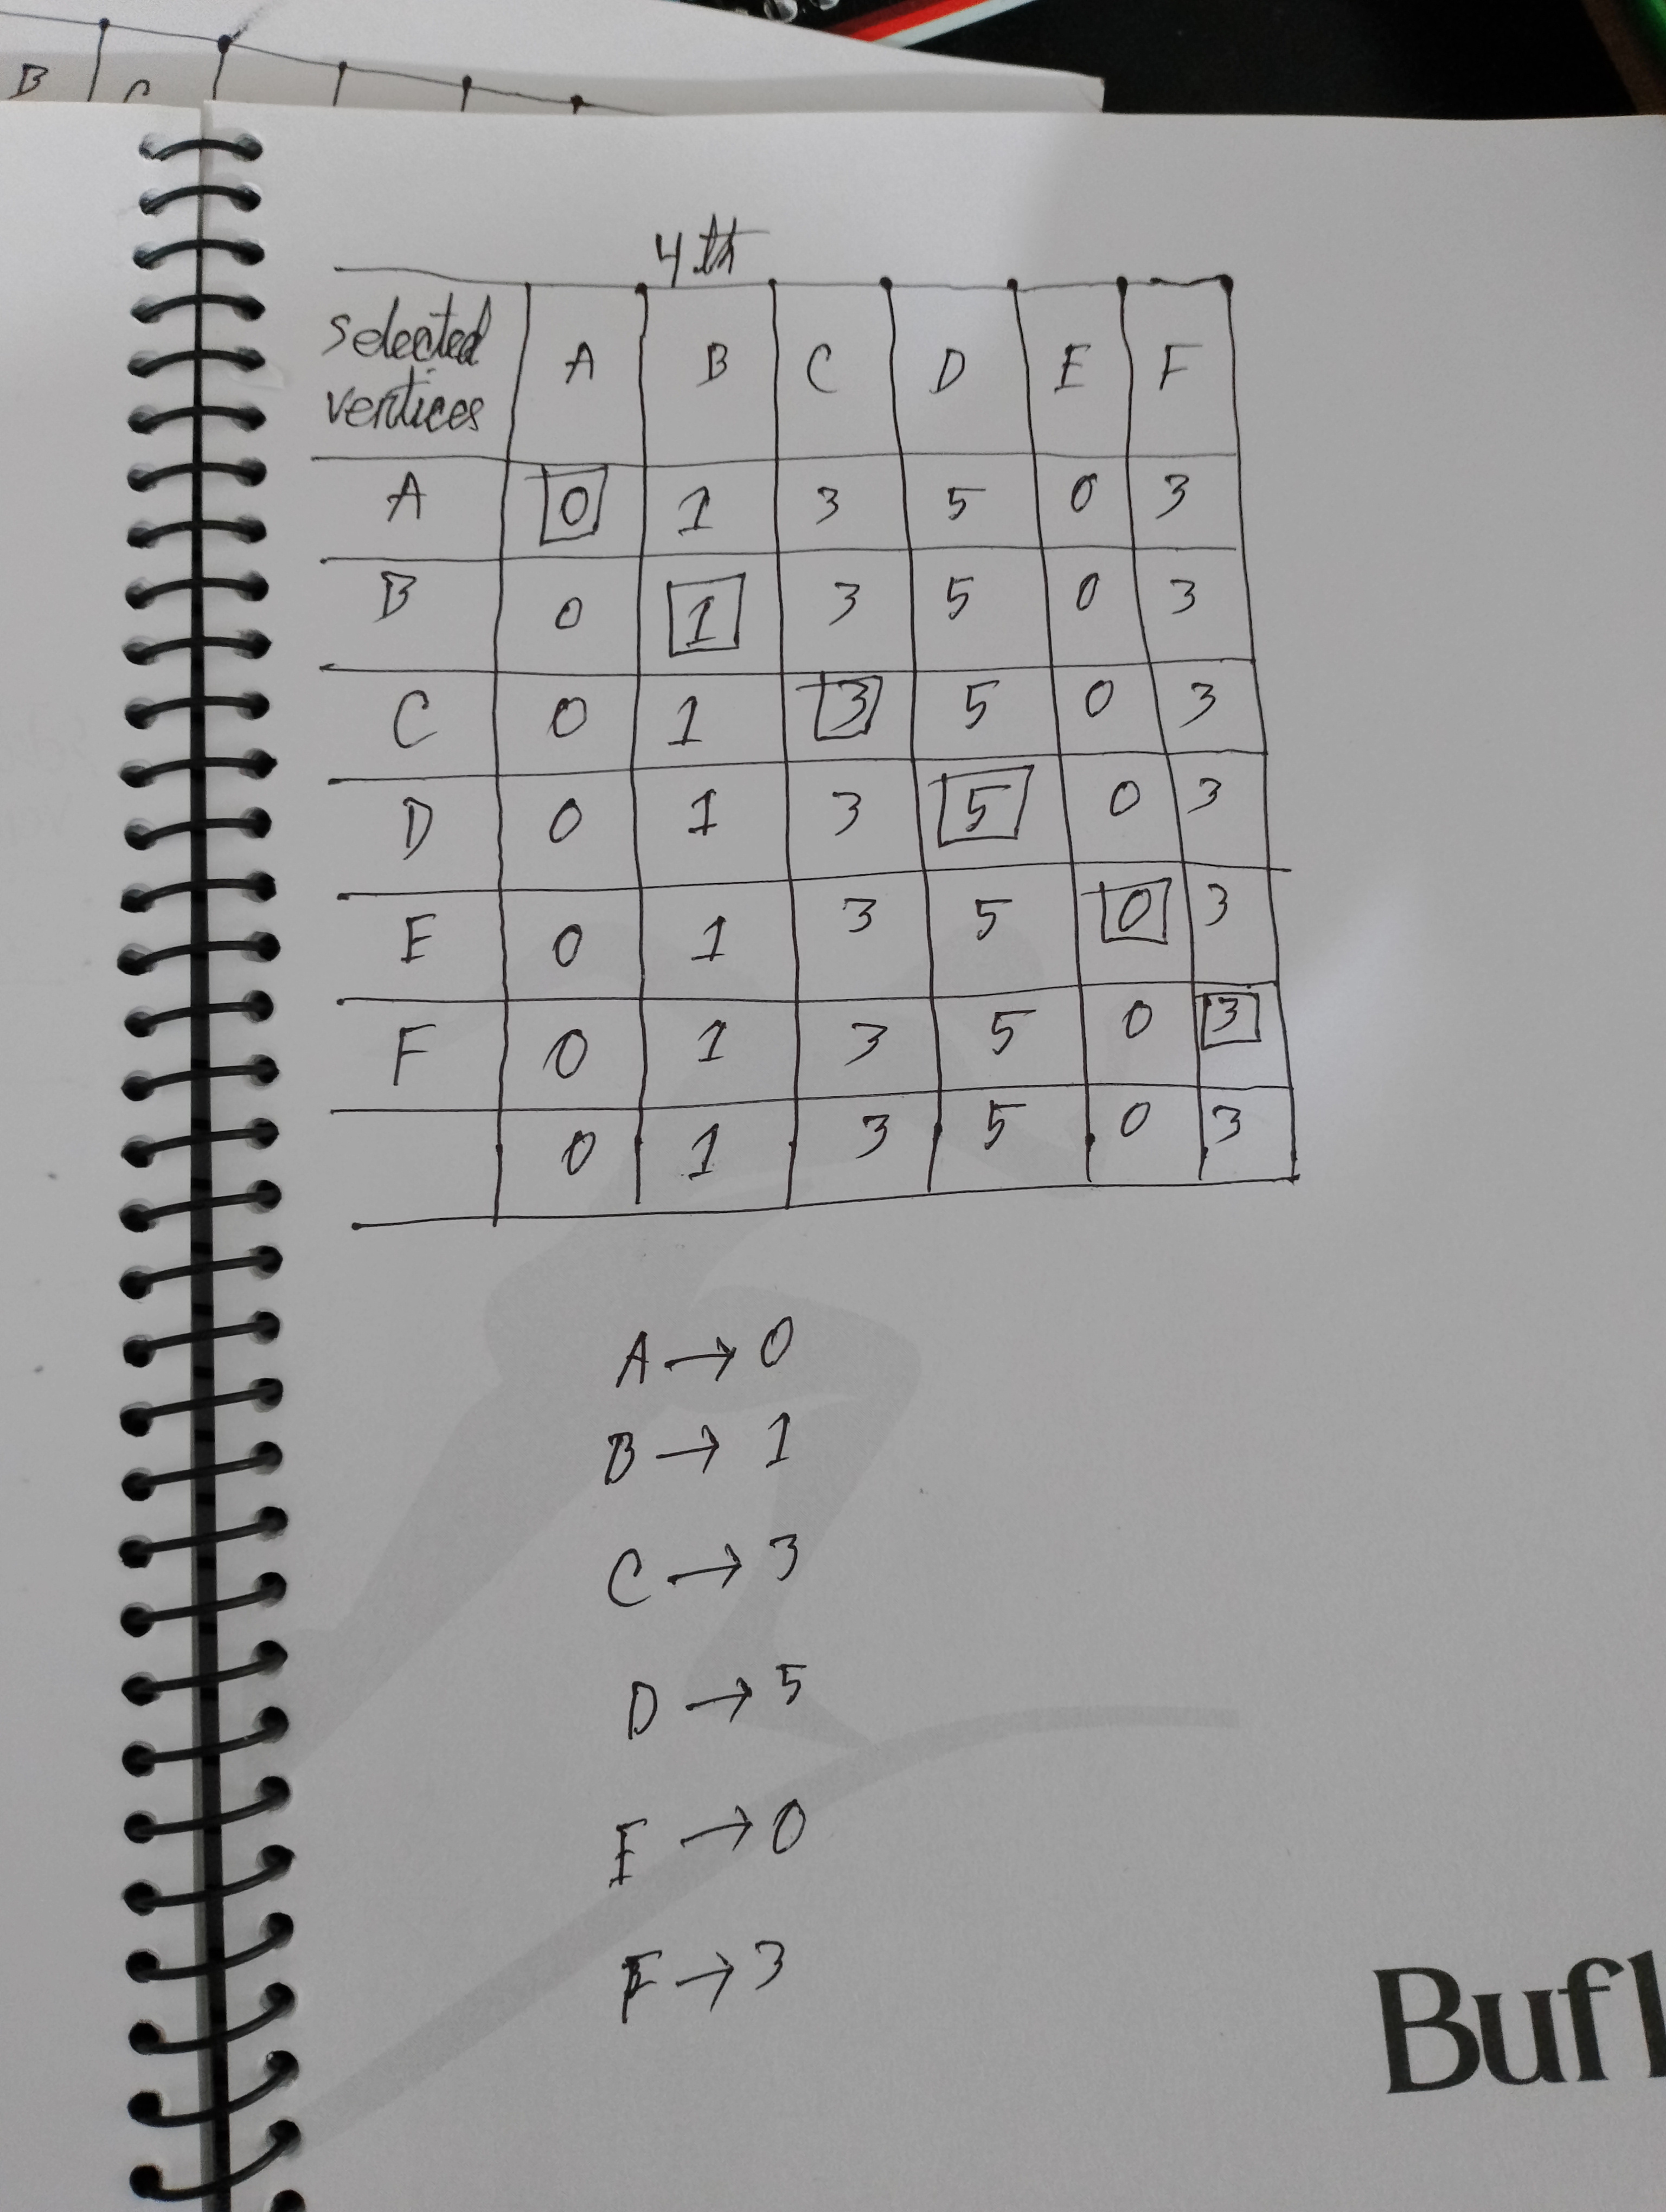 B C
4th
selected vertices A B C D E F
A 0 1 3 5 0 3
B 0 1 3 5 0 3
C 0 1 3 5 0 3
D 0 1 3 5 0 3
E 0 1 3 5 0 3
F 0 1 3 5 0 3
0 1 3 5 0 3
A → 0
B → 1
C → 3
D → 5
E → 0
F → 3